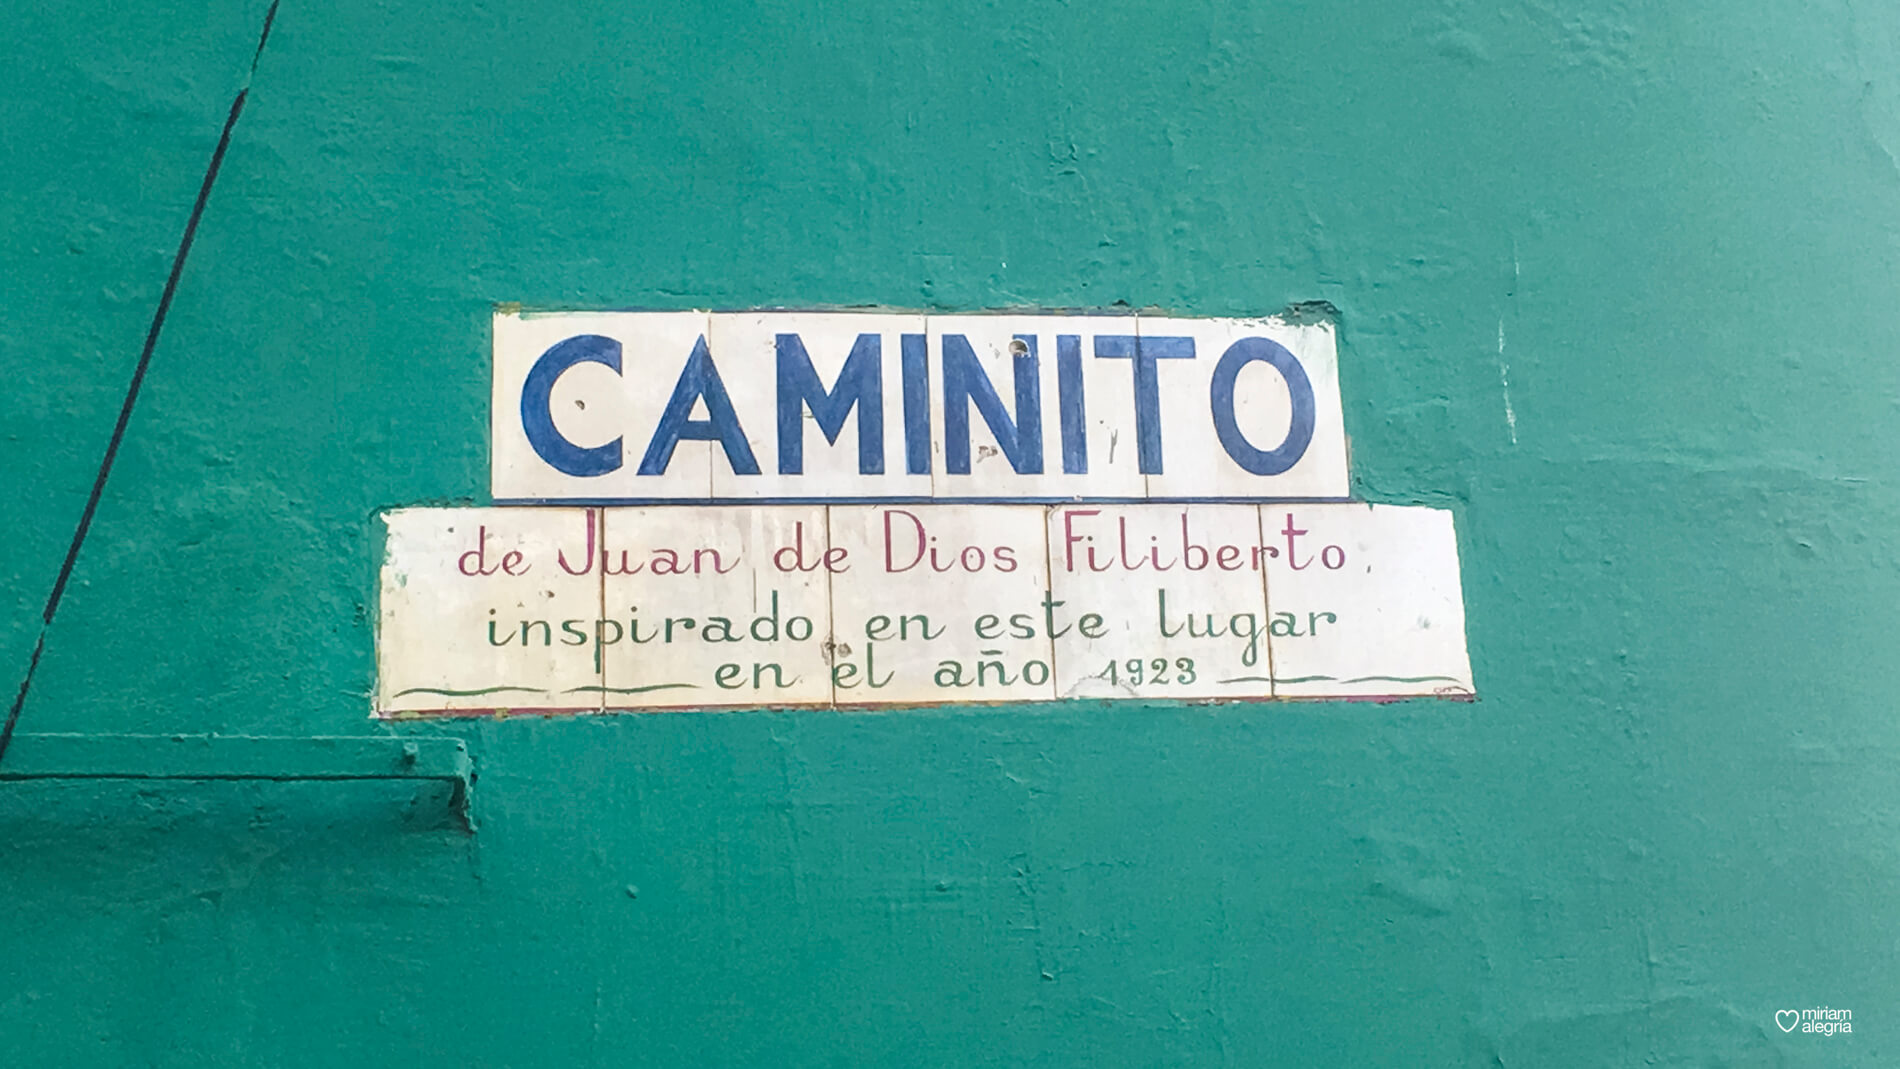 CAMINITO
de Juan de Dios Filiberto,
inspirado en este lugar
en el año 1923
miriam
alegria